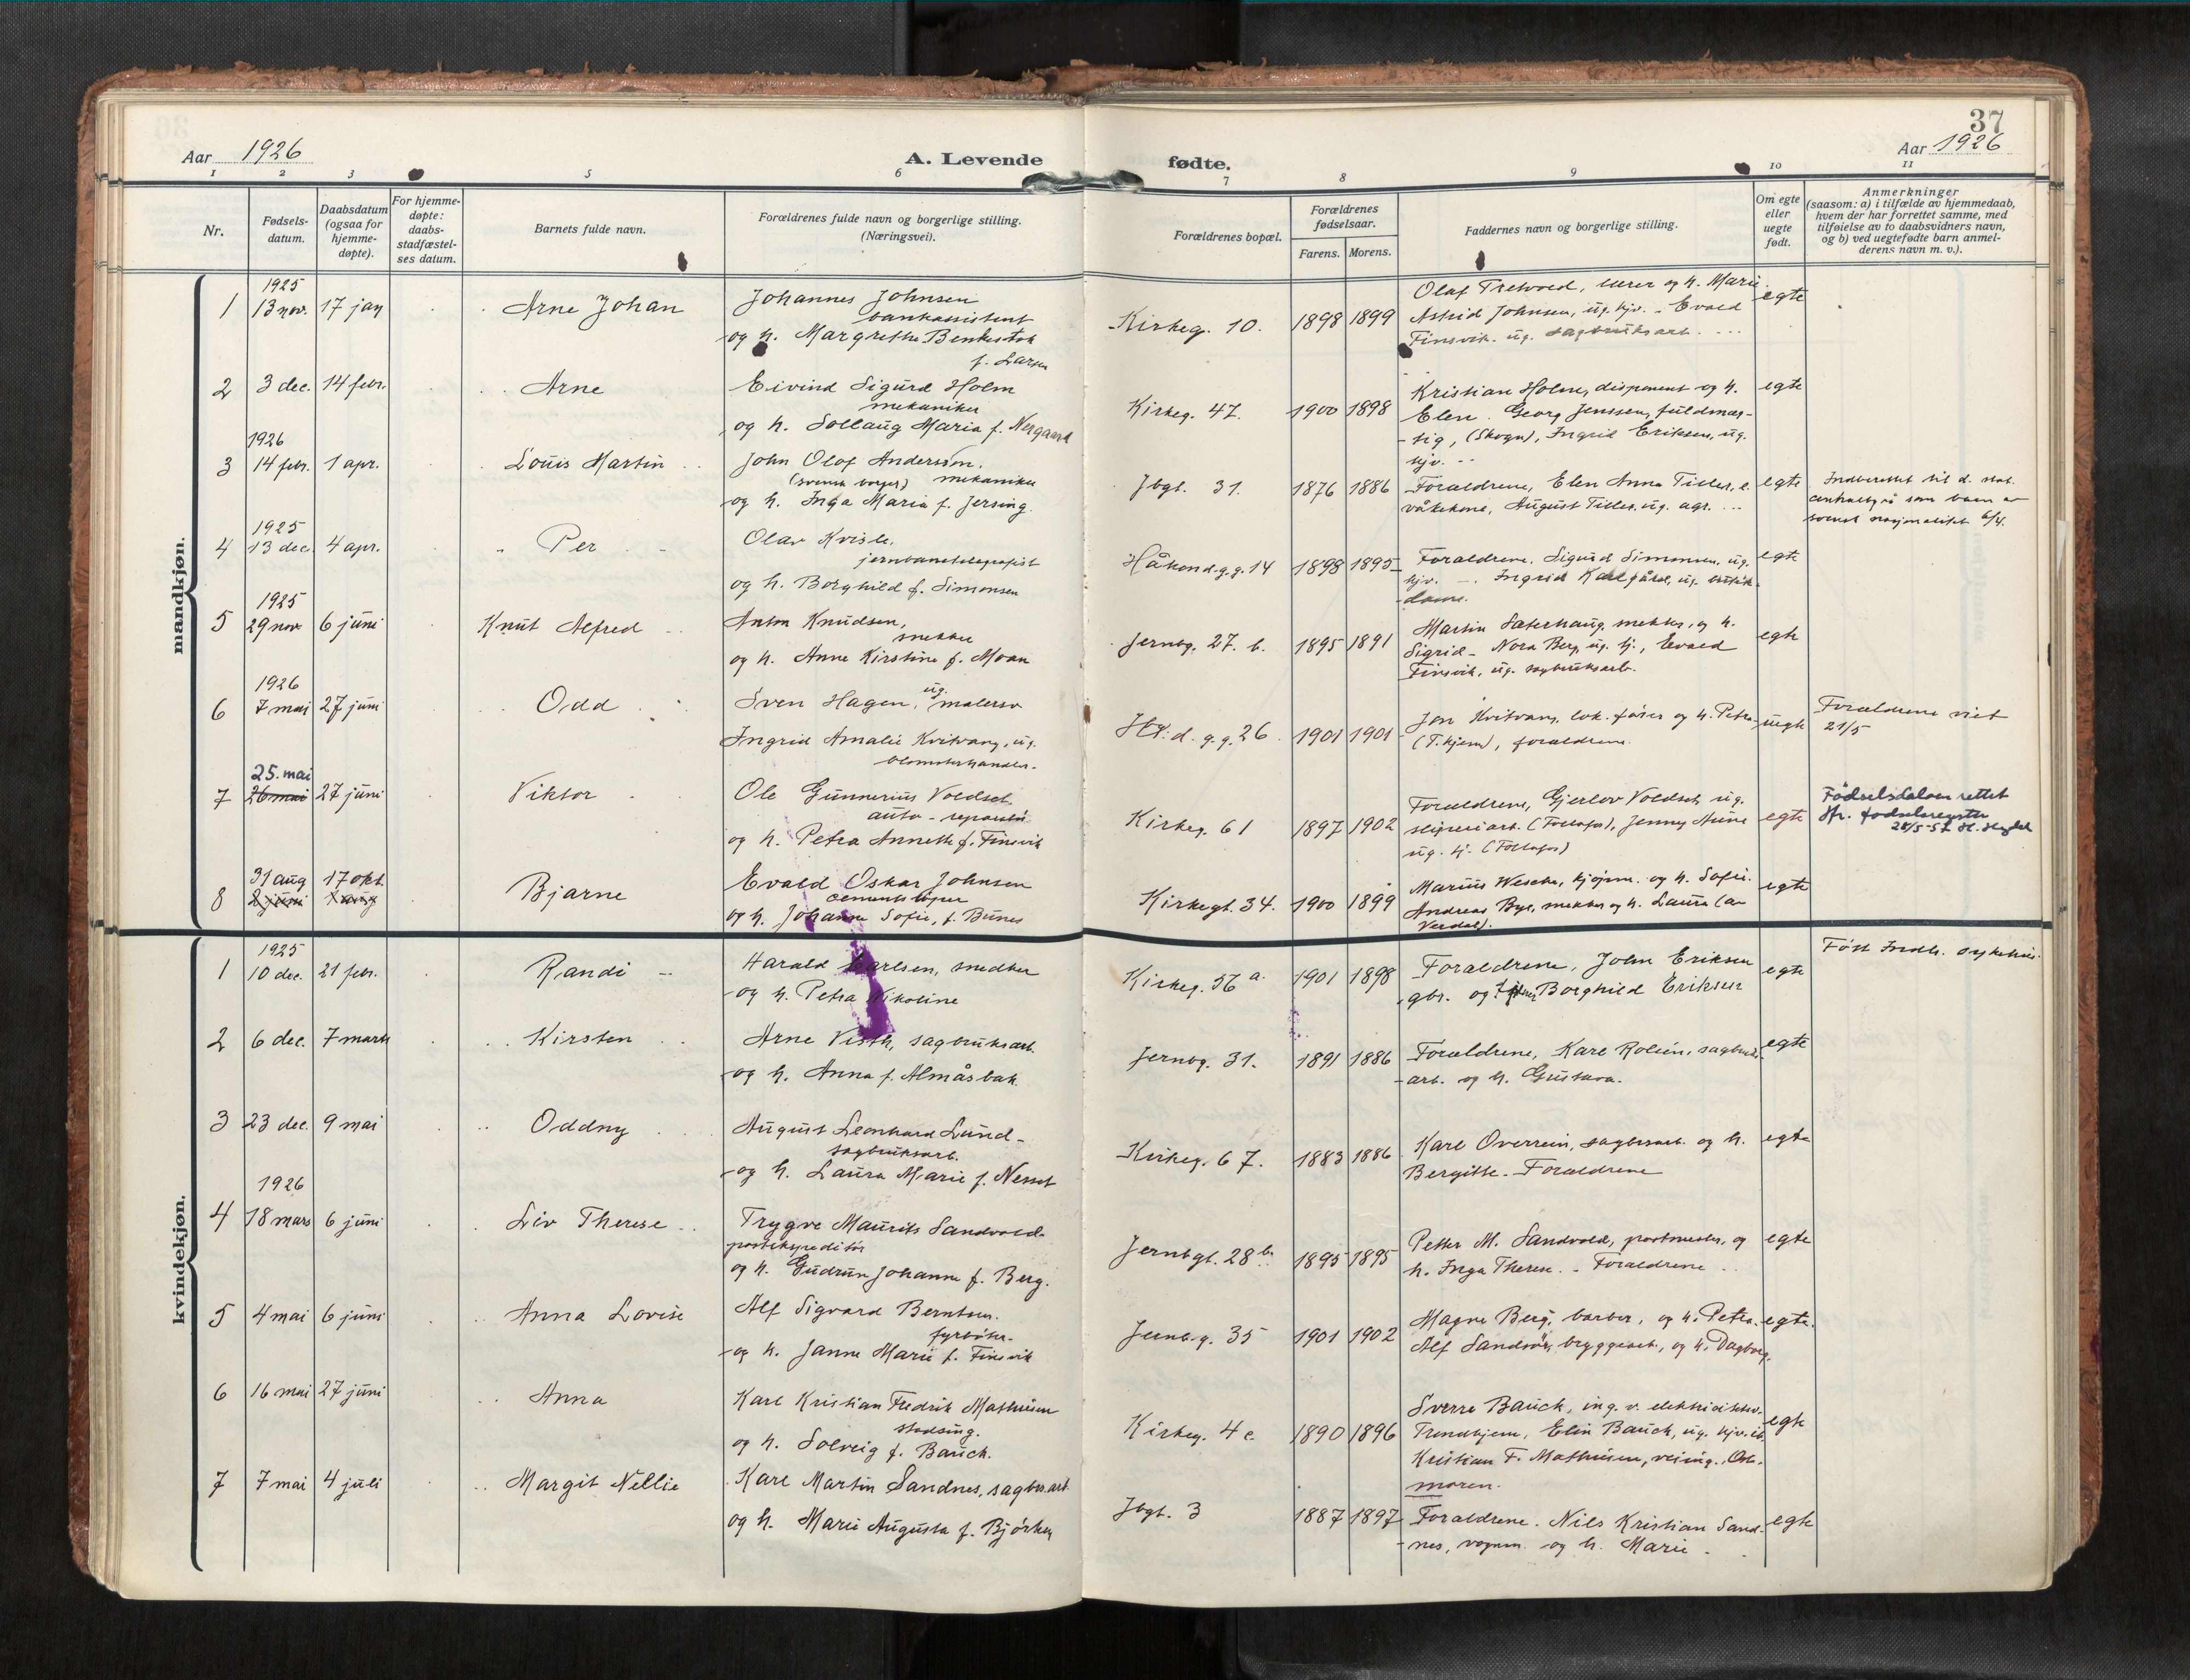 37
Aar 1926
A. Levende fødte.
Aar 1926
1 2 3 5 6 7 8 9 10 11
Nr.
Fødsels-
datum.
Daabsdatum
(ogsaa for
hjemme-
døpte).
For hjemme-
døpte:
daabs-
stadfæstel-
ses datum.
Barnets fulde navn.
Forældrenes fulde navn og borgerlige stilling.
(Næringsvei).
Forældrenes bopæl.
Forældrenes
fødselsaar.
Farens. Morens.
Faddernes navn og borgerlige stilling.
Om egte
eller
uegte
født.
Anmerkninger
(saasom: a) i tilfælde av hjemmedaab,
hvem der har forrettet samme, med
tilføielse av to daabsvidners navn,
og b) ved uegtefødte barn anmel-
derens navn m. v.).
mandkjøn.
1
1925
13 nov.
17 jan
Arne Johan
Johannes Johnsen
bankassistent
og h. Margrethe Benkestok
f. Larsen
Kirkeg. 10.
1898 1899
Olaf Tretvold, lærer og h. Marie.
Astrid Johnsen, ug. hjv. - Evald
Finsvik. ug. sagbruksarb.
egte
2
3 dec.
14 febr.
Arne
Eivind Sigurd Holm
mekaniker
og h. Sollaug Maria f. Nergaard
Kirkeg. 47.
1900 1898
Kristian Holm, disponent og h.
Elen. Georg Jenssen, fuldmæg-
tig, (Skogn), Ingrid Eriksen, ug.
hjv.
egte
3
1926
14 febr.
1 apr.
Louis Martin
John Olof Andersson.
(svensk borger) mekaniker
og h. Inga Maria f. Jersing.
Jbgt. 31.
1876 1886
Forældrene, Elen Anna Tiller, e.
våkekone, August Tiller, ug. agr.
egte
Indberettet til d. stat.
centralbyrå som barn av
svensk nasjonalitet 6/4.
4
1925
13 dec.
4 apr.
Per
Olav Kvisle.
jernbanetelegrafist
og h. Borghild f. Simonsen
Håkon d.g.g. 14
1898 1895
Forældrene. Sigurd Simonsen, ug.
hjv. Ingrid Karlgård, ug. butik-
dame.
egte
5
1925
29 nov
6 juni
Knut Alfred
Anton Knudsen,
snekker
og h. Anne Kirstine f. Moan
Jernbg. 27. b.
1895 1891
Martin Saterhaug. snekker, og h.
Sigrid - Nora Berg, ug. hj., Evald
Finsvik, ug. sagbruksarb.
egte
6
1926
7 mai
27 juni
Odd
Sven Hagen, ug. malersv
Ingrid Amalie Kvitvang, ug.
blomsterhandler.
Hk. d. g. g. 26
1901 1901
Jon Kvitvang, lok. fører og h. Petra
(T.hjem), forældrene.
uegte
Forældrene viet
21/5
7
25. mai
26 mai
27 juni
Viktor
Ole Gunnerius Voldset
auto-reparatør
og h. Petra Annette f. Finsvik
Kirkeg. 61
1897 1902
Forældrene, Gjerlov Voldset, ug.
sliperiarb. (Follafos), Jenny Aune
ug. hj. (Follafos)
egte
Fødselsdatoen rettet
jfr. fødselsregister
8
31 aug
2 juni
17 okt.
1 aug
Bjarne
Evald Oskar Johnsen
cementstøper
og h. Johanne Sofie, f. Bunes
Kirkegt. 34.
1900 1899
Marius Wesche, kjøpm. og h. Sofie.
Andreas Bye, snekker og h. Laura (av
Verdal).
egte
kvindekjøn.
1
1925
10 dec.
21 febr.
Randi
Harald Carlsen, snedker
og h. Petra Nikoline
Kirkeg. 56 a.
1901 1898
Forældrene, John Eriksen
gbr. og Borghild Eriksen
egte
Født Indh. sykehus.
2
6 dec.
7 mars
Kirsten
Arne Visth, sagbruksarb.
og h. Anna f. Almåsbak
Jernbg. 31.
1891 1886
Forældrene, Karl Rolén, sagbruks-
arb. og h. Gustava.
egte
3
23 dec.
9 mai
Oddny
August Leonhard Lund
sagbruksarb.
og h. Laura Marie f. Nesset
Kirkeg. 67.
1883 1886
Karl Overrein, sagbrarb. og h.
Bergitte. Forældrene
egte
4
1926
18 mars
6 juni
Liv Therese
Trygve Maurits Sandvold
postekspeditør
og h. Gudrun Johanne f. Berg.
Jernbgt. 28 b.
1895 1895
Petter M. Sandvold, postmester, og
h. Inga Therese. Forældrene
egte
5
4 mai
6 juni
Anna Lovise
Alf Sigvard Berntsen.
fyrbøter
og h. Janna Marie f. Finsvik
Jernb.g. 35
1901 1902
Magne Berg, barber, og h. Petra.
Alf Sandsør, bryggeriarb., og h. Dagborg.
egte.
6
16 mai
27 juni
Anna
Karl Kristian Fredrik Mathisen
stadsing.
og h. Solveig f. Bauck.
Kirkeg. 4 c.
1890 1896
Sverre Bauck, ing. v. elektricitetsv.
Trondhjem, Elin Bauck, ug. hjv. ib.
Kristian F. Mathisen, veiing., Osl.
moren.
egte
7
7 mai
4 juli
Margit Nellie
Karl Martin Sandnes, sagbr.arb
og h. Marie Augusta f. Bjørken
Jbgt. 3
1887 1897
Forældrene. Nils Kristian Sand-
nes, vognm. og h. Marie.
egte